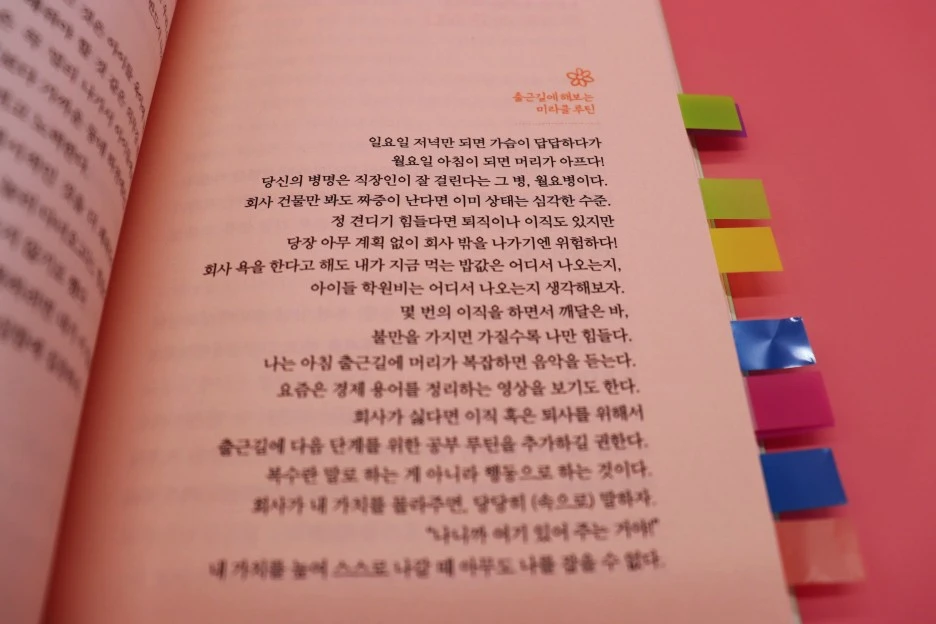 출근길에 해보는
미라클 루틴
일요일 저녁만 되면 가슴이 답답하다가
월요일 아침이 되면 머리가 아프다!
당신의 병명은 직장인이 잘 걸린다는 그 병, 월요병이다.
회사 건물만 봐도 짜증이 난다면 이미 상태는 심각한 수준.
정 견디기 힘들다면 퇴직이나 이직도 있지만
당장 아무 계획 없이 회사 밖을 나가기엔 위험하다!
회사 욕을 한다고 해도 내가 지금 먹는 밥값은 어디서 나오는지,
아이들 학원비는 어디서 나오는지 생각해보자.
몇 번의 이직을 하면서 깨달은 바,
불만을 가지면 가질수록 나만 힘들다.
나는 아침 출근길에 머리가 복잡하면 음악을 듣는다.
요즘은 경제 용어를 정리하는 영상을 보기도 한다.
회사가 싫다면 이직 혹은 퇴사를 위해서
출근길에 다음 단계를 위한 공부 루틴을 추가하길 권한다.
복수란 말로 하는 게 아니라 행동으로 하는 것이다.
회사가 내 가치를 몰라주면, 당당히 (속으로) 말하자.
"나니까 여기 있어 주는 거야!"
내 가치를 높여 스스로 나갈 때 아무도 나를 잡을 수 없다.